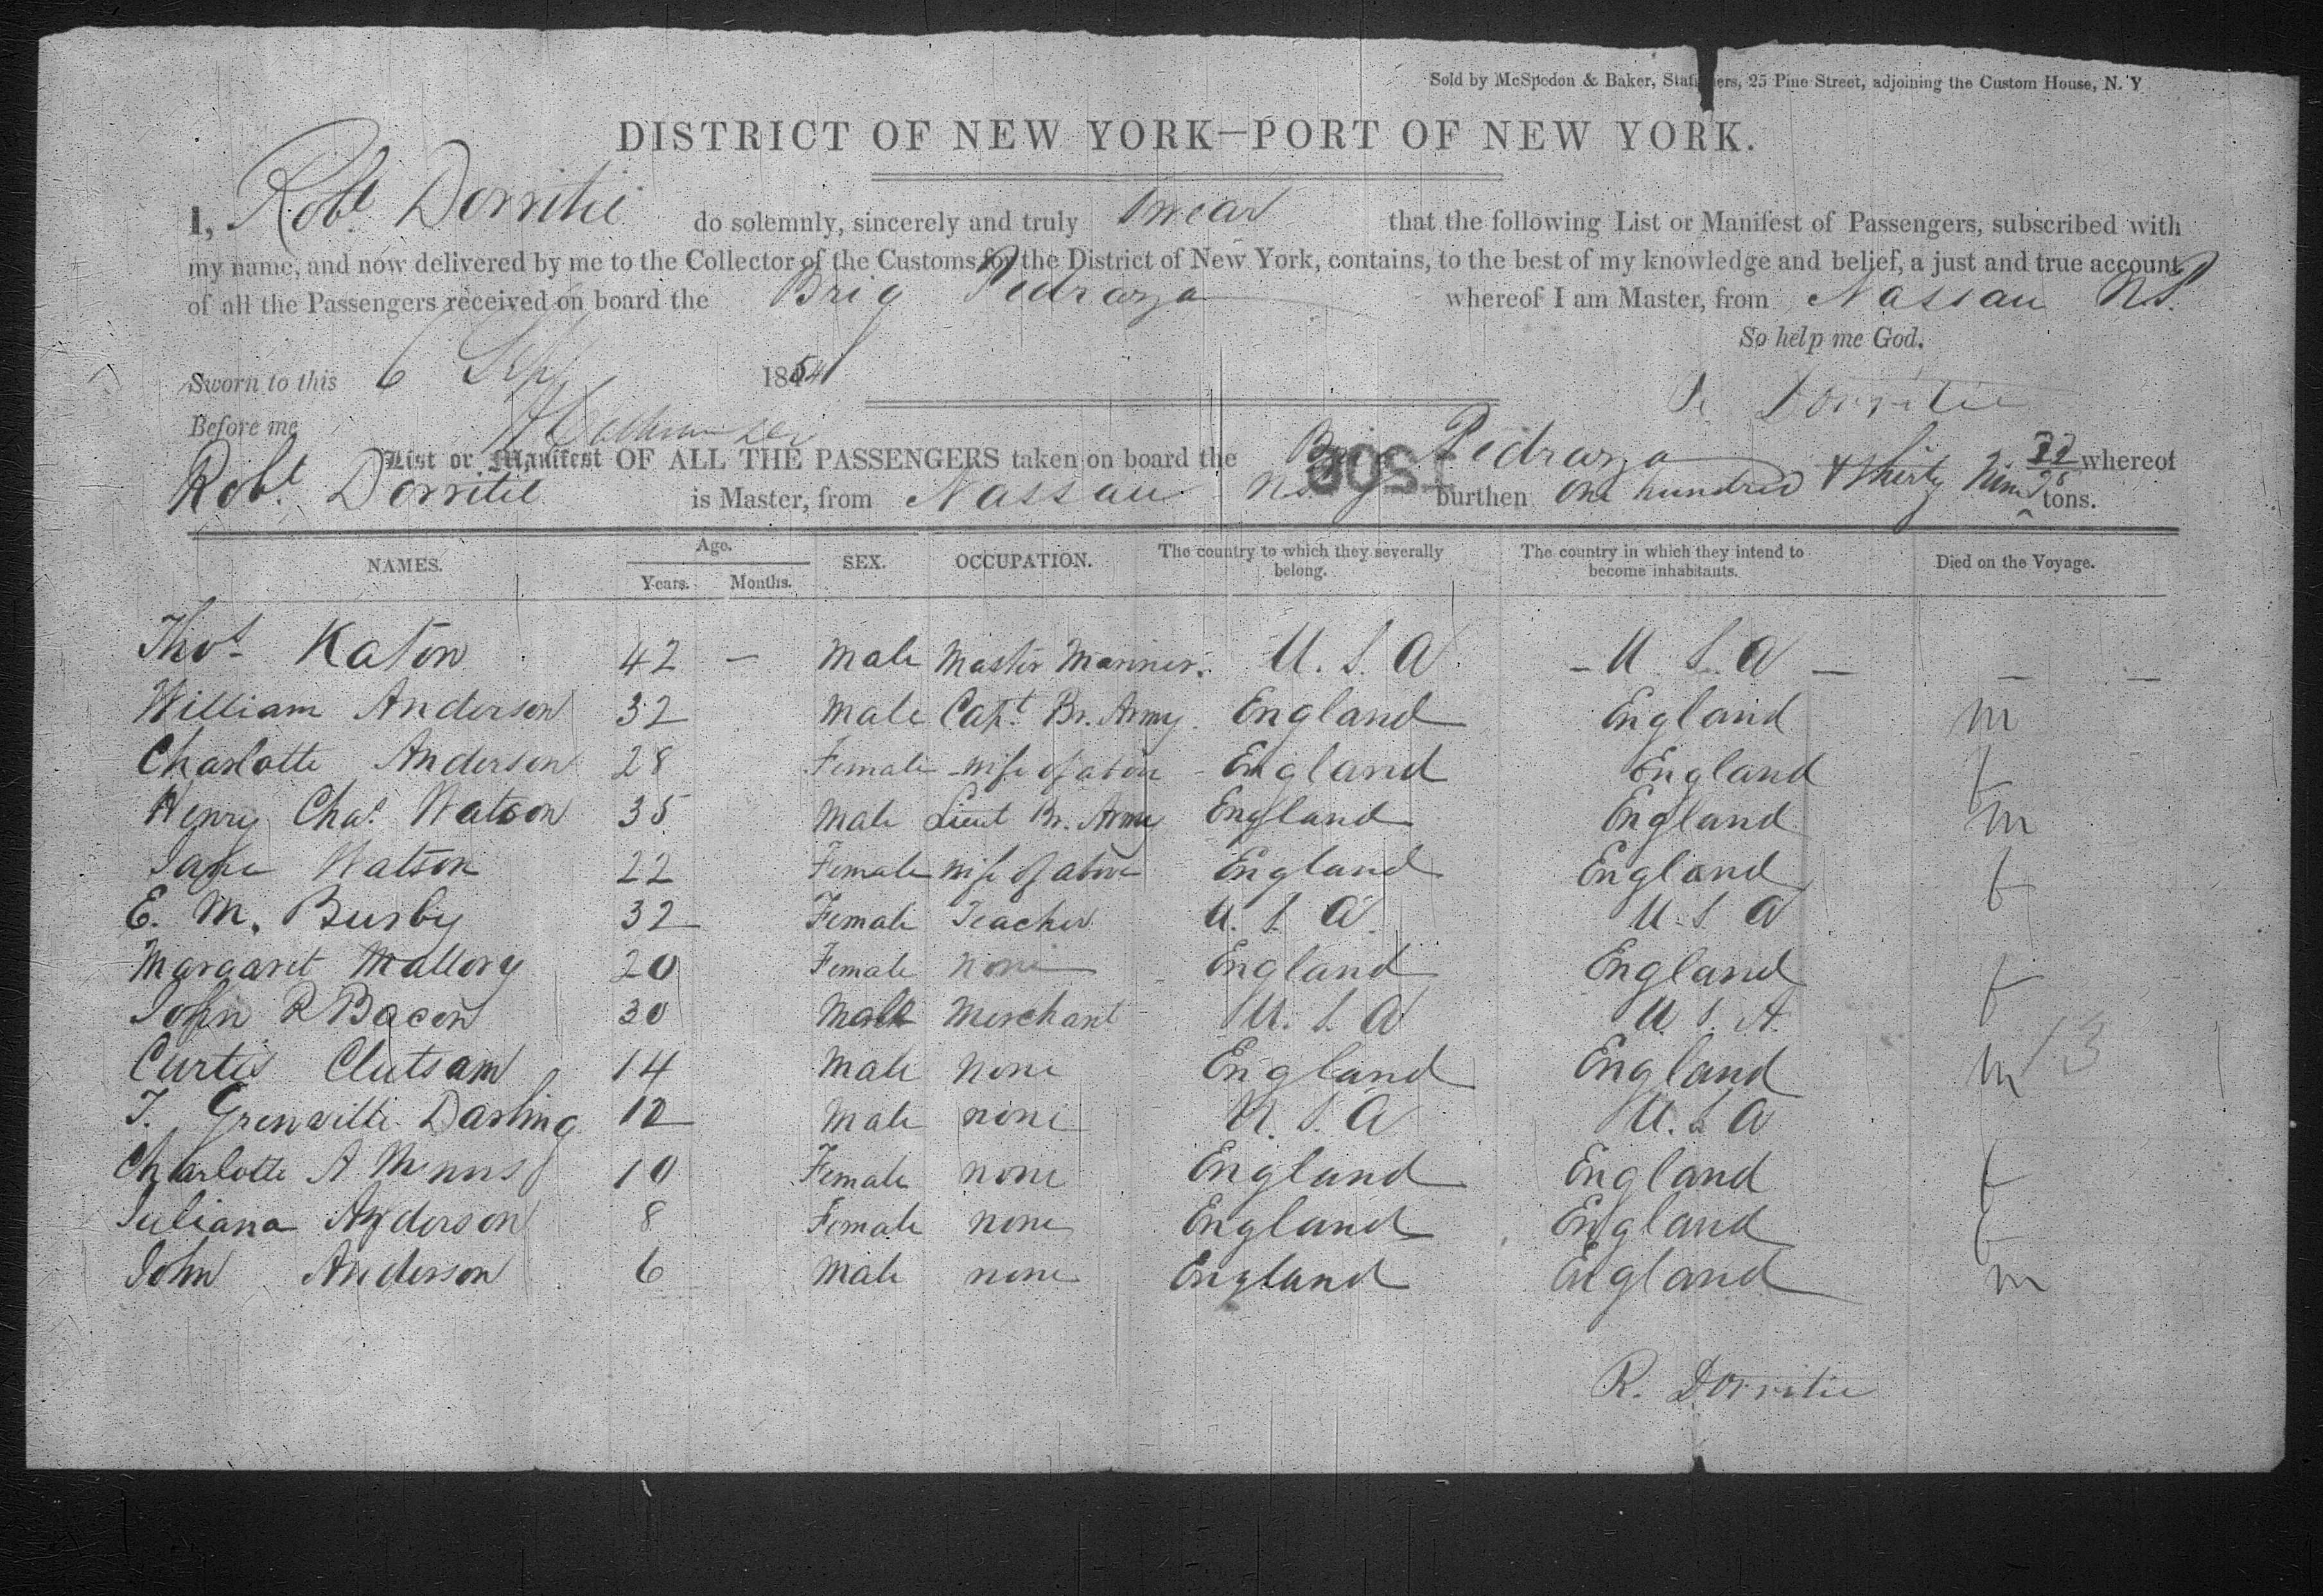 Sold by McSpedon & Baker, Stati ers, 25 Pine Street, adjoining the Custom House, N. Y
DISTRICT OF NEW YORK—PORT OF NEW YORK.
I, Robt Dorritie do solemnly, sincerely and truly swear that the following List or Manifest of Passengers, subscribed with
my name, and now delivered by me to the Collector of the Customs for the District of New York, contains, to the best of my knowledge and belief, a just and true account
of all the Passengers received on board the Brig Pedraza whereof I am Master, from Nassau N.P.
So help me God.
Sworn to this 6 Sep 1854
R Dorritie
Before me
List or Manifest OF ALL THE PASSENGERS taken on board the Brig Pedraza whereof
Robt. Dorritie is Master, from Nassau N.P. burthen One hundred & Thirty Nine tons.
NAMES. Age. Years. Months. SEX. OCCUPATION. The country to which they severally belong. The country in which they intend to become inhabitants. Died on the Voyage.
Thos Katon 42 — Male Master Mariner. U. S. A — U S. A — — —
William Anderson 32 Male Capt. Br. Army. England England m
Charlotte Anderson 28 Female wife of above England England f
Henry Chas. Watson 35 Male Lieut Br. Army England England m
Jane Watson 22 Female wife of above England England f
E. M. Busby 32 Female Teacher U. S. A. U. S A
Margaret Mallory 20 Female none England England f
John R Bacon 30 Male Merchant U. S. A U S. A.
Curtis Clutsam 14 Male none England England m 13
T. Grenville Darling 12 Male none U. S. A U. S. A
Charlotte A Minns 10 Female none England England f
Juliana Anderson 8 Female none England England f
John Anderson 6 Male none England England m
R. Dorritie